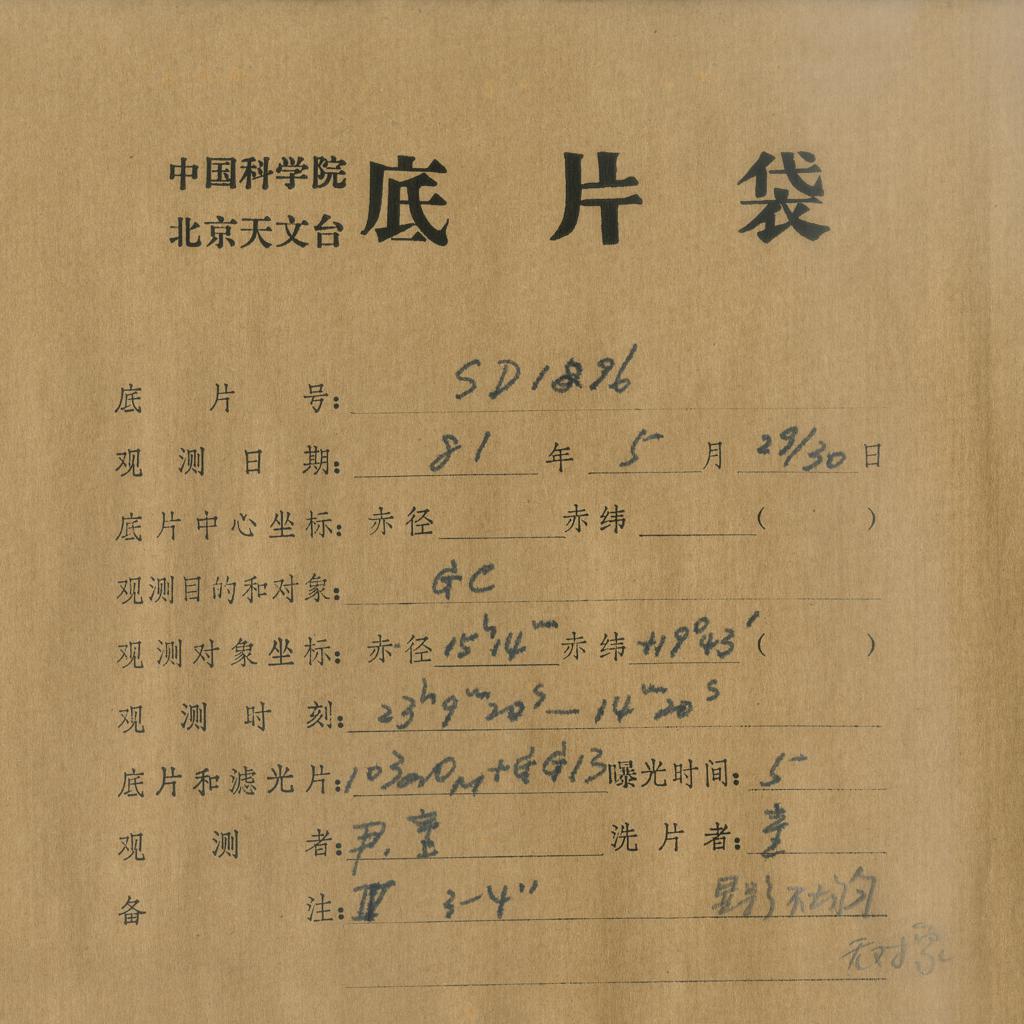 中国科学院
北京天文台
底片袋
底片号: SD1896
观测日期: 81年 5月 29/30日
底片中心坐标: 赤径 赤纬 ( )
观测目的和对象: GC
观测对象坐标: 赤径 15h14m 赤纬 +19°43′ ( )
观测时刻: 23h9m20s—14m20s
底片和滤光片: 103aO +GG13 曝光时间: 5
观测者: 尹. 洗片者:
备注: IV 3-4" 显影不均匀
无对象